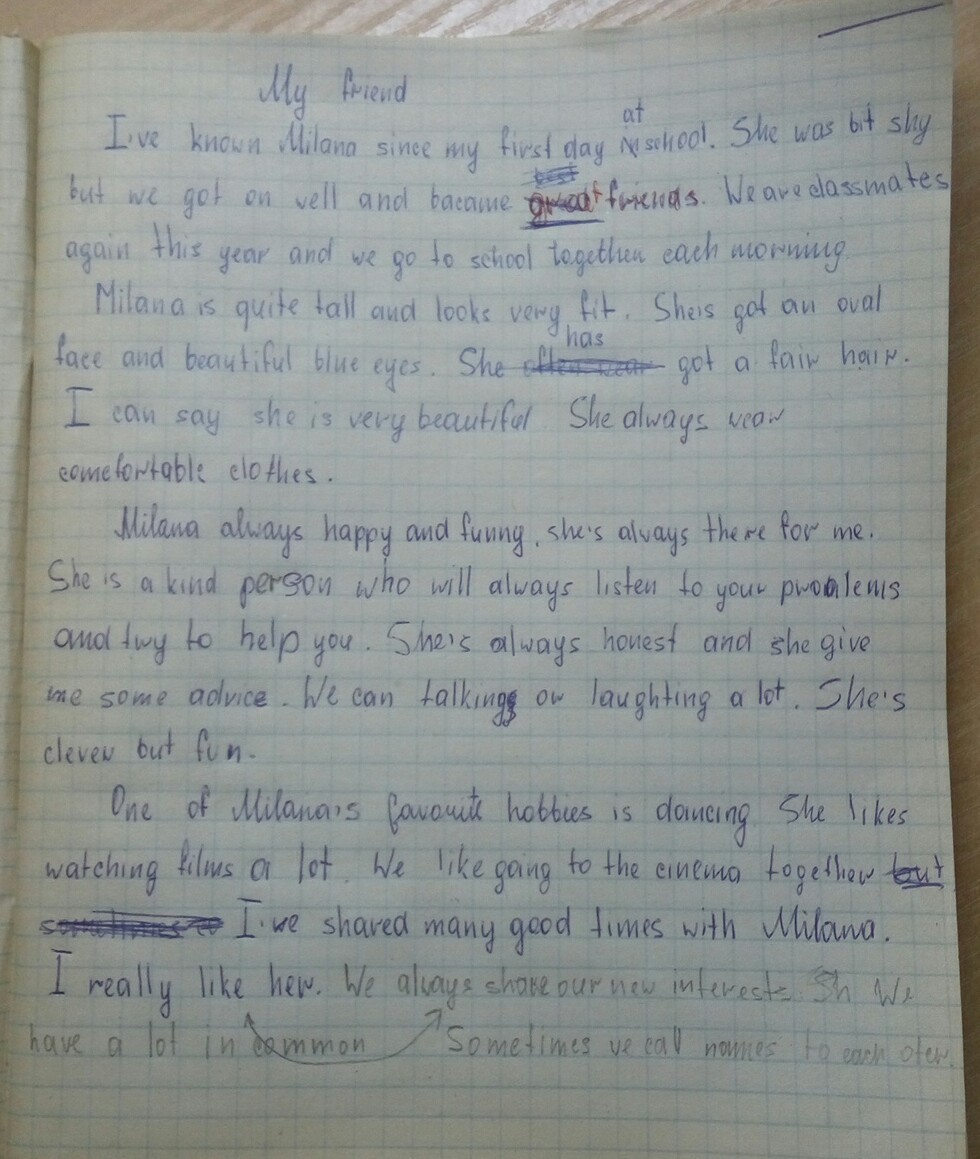 My friend
I've known Milana since my first day at school. She was bit shy
but we got on well and bacame great friends. We are classmates
again this year and we go to school together each morning
Milana is quite tall and looks very fit. She's got an oval
face and beautiful blue eyes. She has got a fair hair.
I can say she is very beautiful She always wear
comefortable clothes.
Milana always happy and funny, she's always there for me.
She is a kind person who will always listen to your problems
and try to help you. She's always honest and she give
me some advice. We can talking or laughting a lot. She's
clever but fun.
One of Milana's favourite hobbies is dancing She likes
watching films a lot. We like going to the cinema together but
sometimes I've shared many good times with Milana.
I really like her. We always share our new interests. Sh We
have a lot in common Sometimes we call names to each oter.